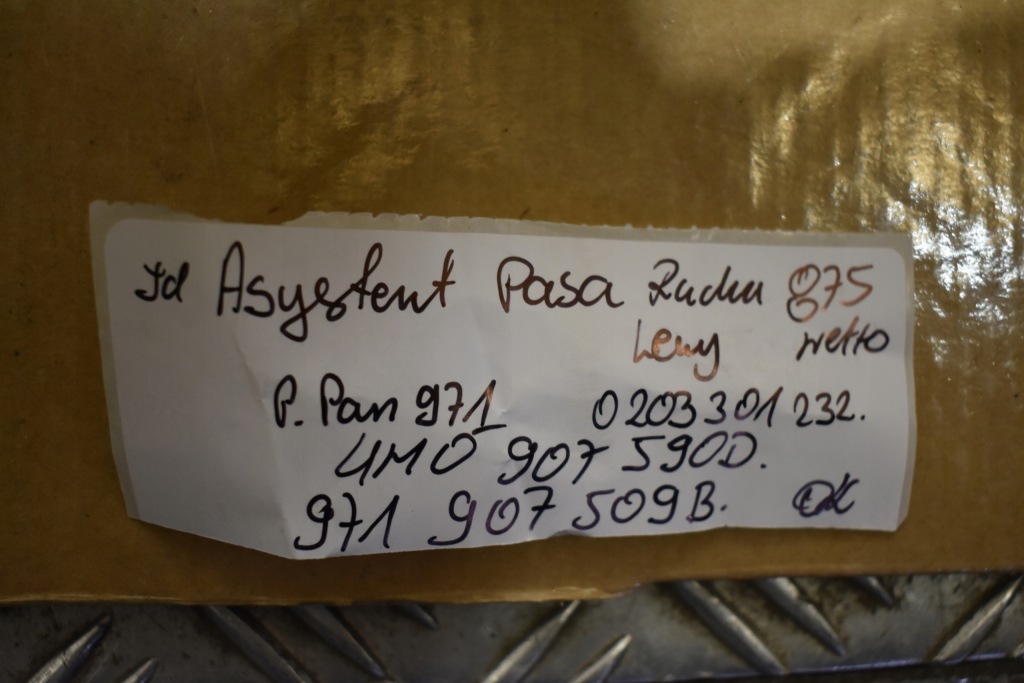 Jd Asystent Pasa Ruchu 875
Lewy netto
P. Pan 971 0203301232.
4M0 907 590D.
971 907 509B. OK